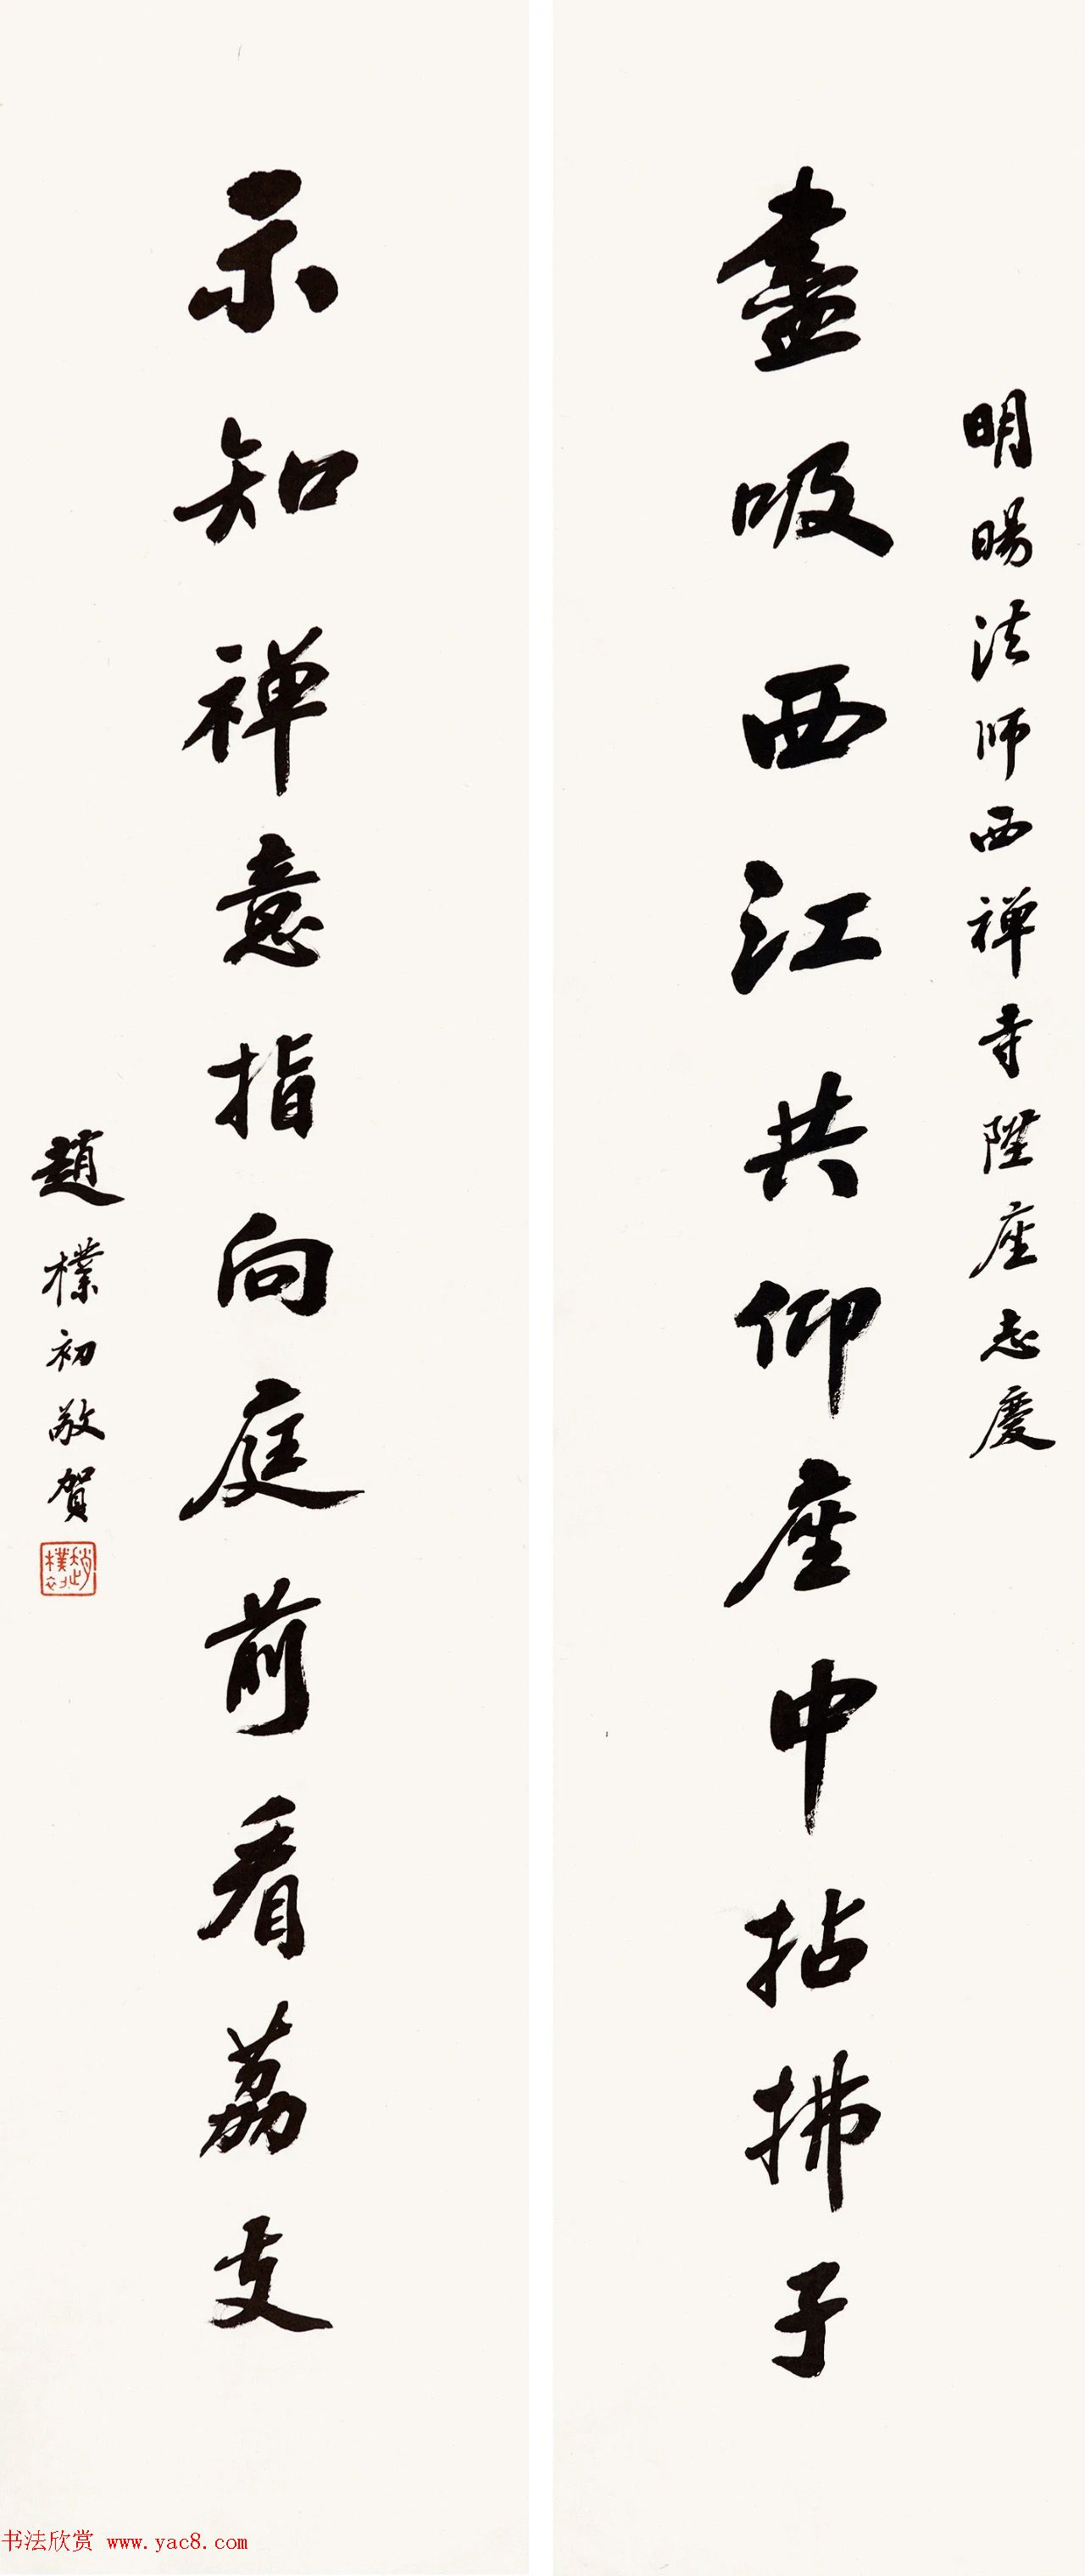 明暘法师西禅寺陞座志慶
盡吸西江共仰座中拈拂子
示知禅意指向庭前看荔支
趙樸初敬賀
趙樸初
书法欣赏 www.yac8.com